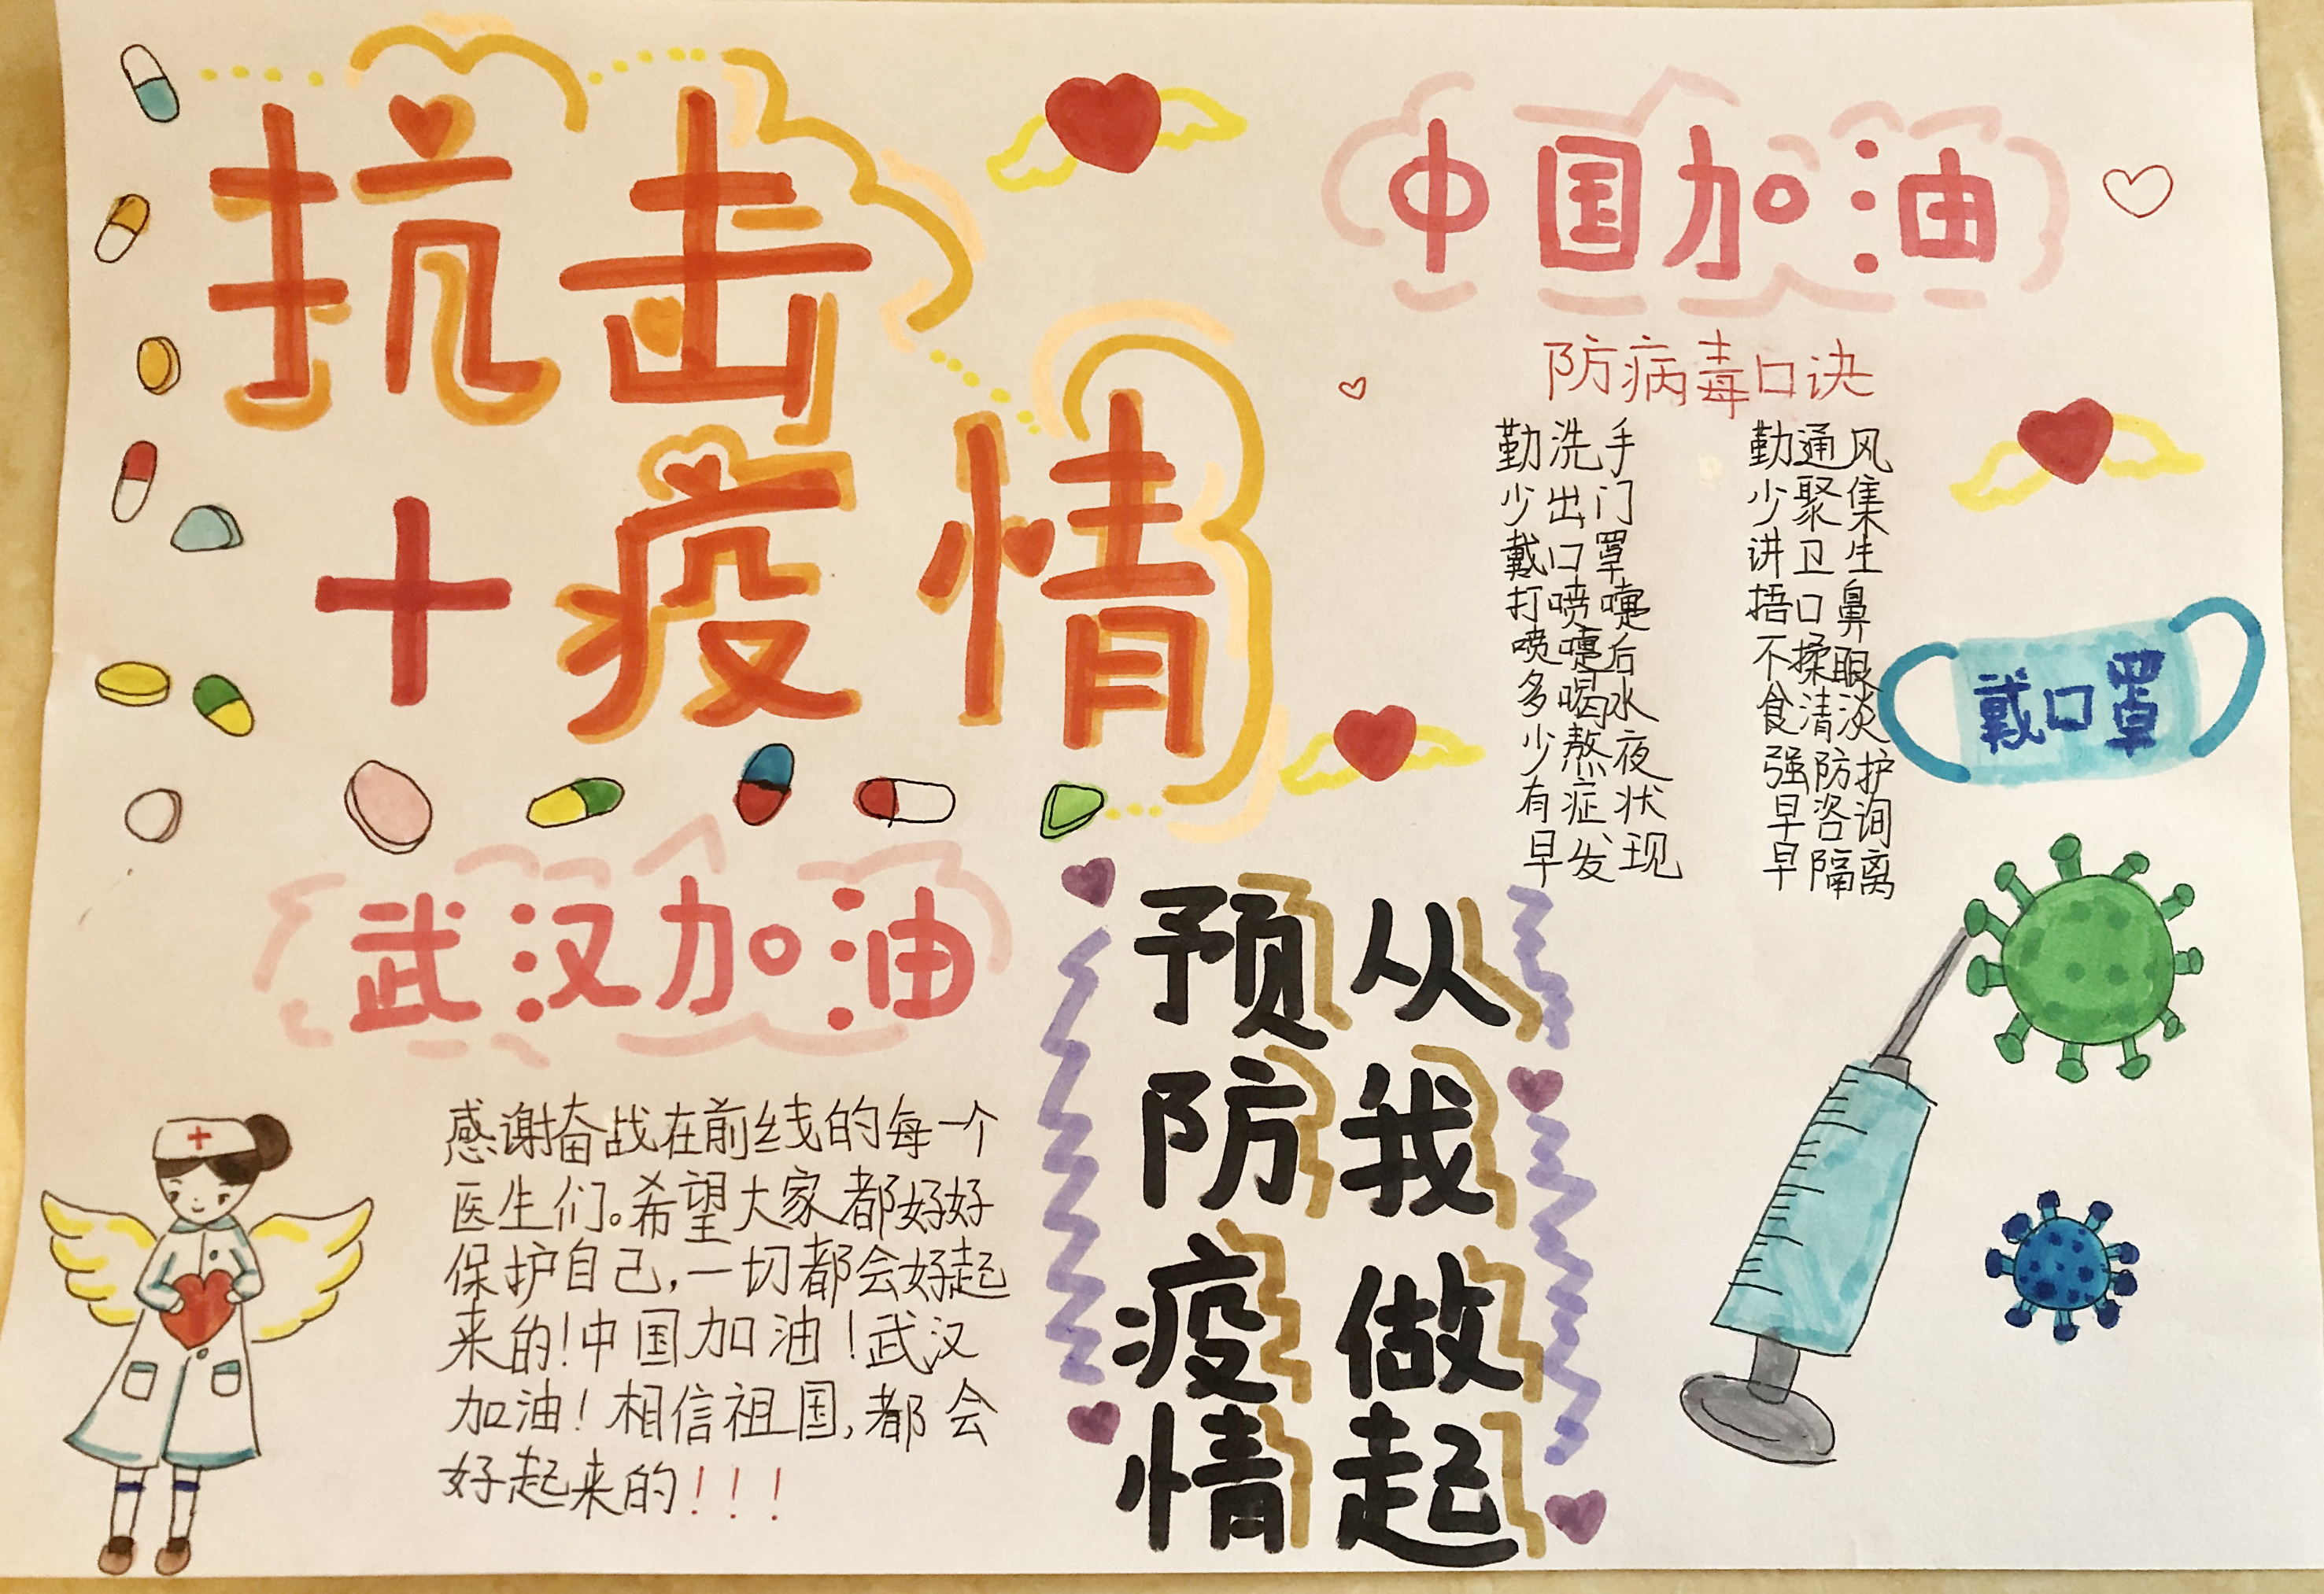 抗击
疫情
中国加油
防病毒口诀
勤洗手 勤通风
少出门 少聚集
戴口罩 讲卫生
打喷嚏 捂口鼻
喷嚏后 不揉眼
多喝水 食清淡
少熬夜 强防护
有症状 早咨询
早发现 早隔离
戴口罩
武汉加油
感谢奋战在前线的每一个
医生们。希望大家都好好
保护自己，一切都会好起
来的！中国加油！武汉
加油！相信祖国，都会
好起来的！！！
预防疫情
从我做起